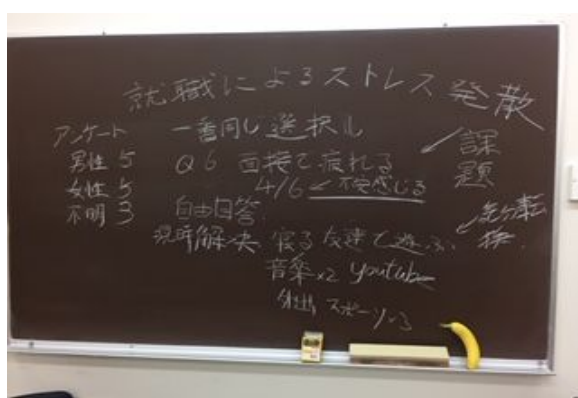 就職によるストレス発散
アンケート
男性 5
女性 5
不明 3
一番同じ選択し
Q6 面接で疲れる
4/6 ← 不安感じる
課題
自由回答
寝る 友達で遊ぶ
気分転換
音楽×2 youtube
外出 スポーツ×3